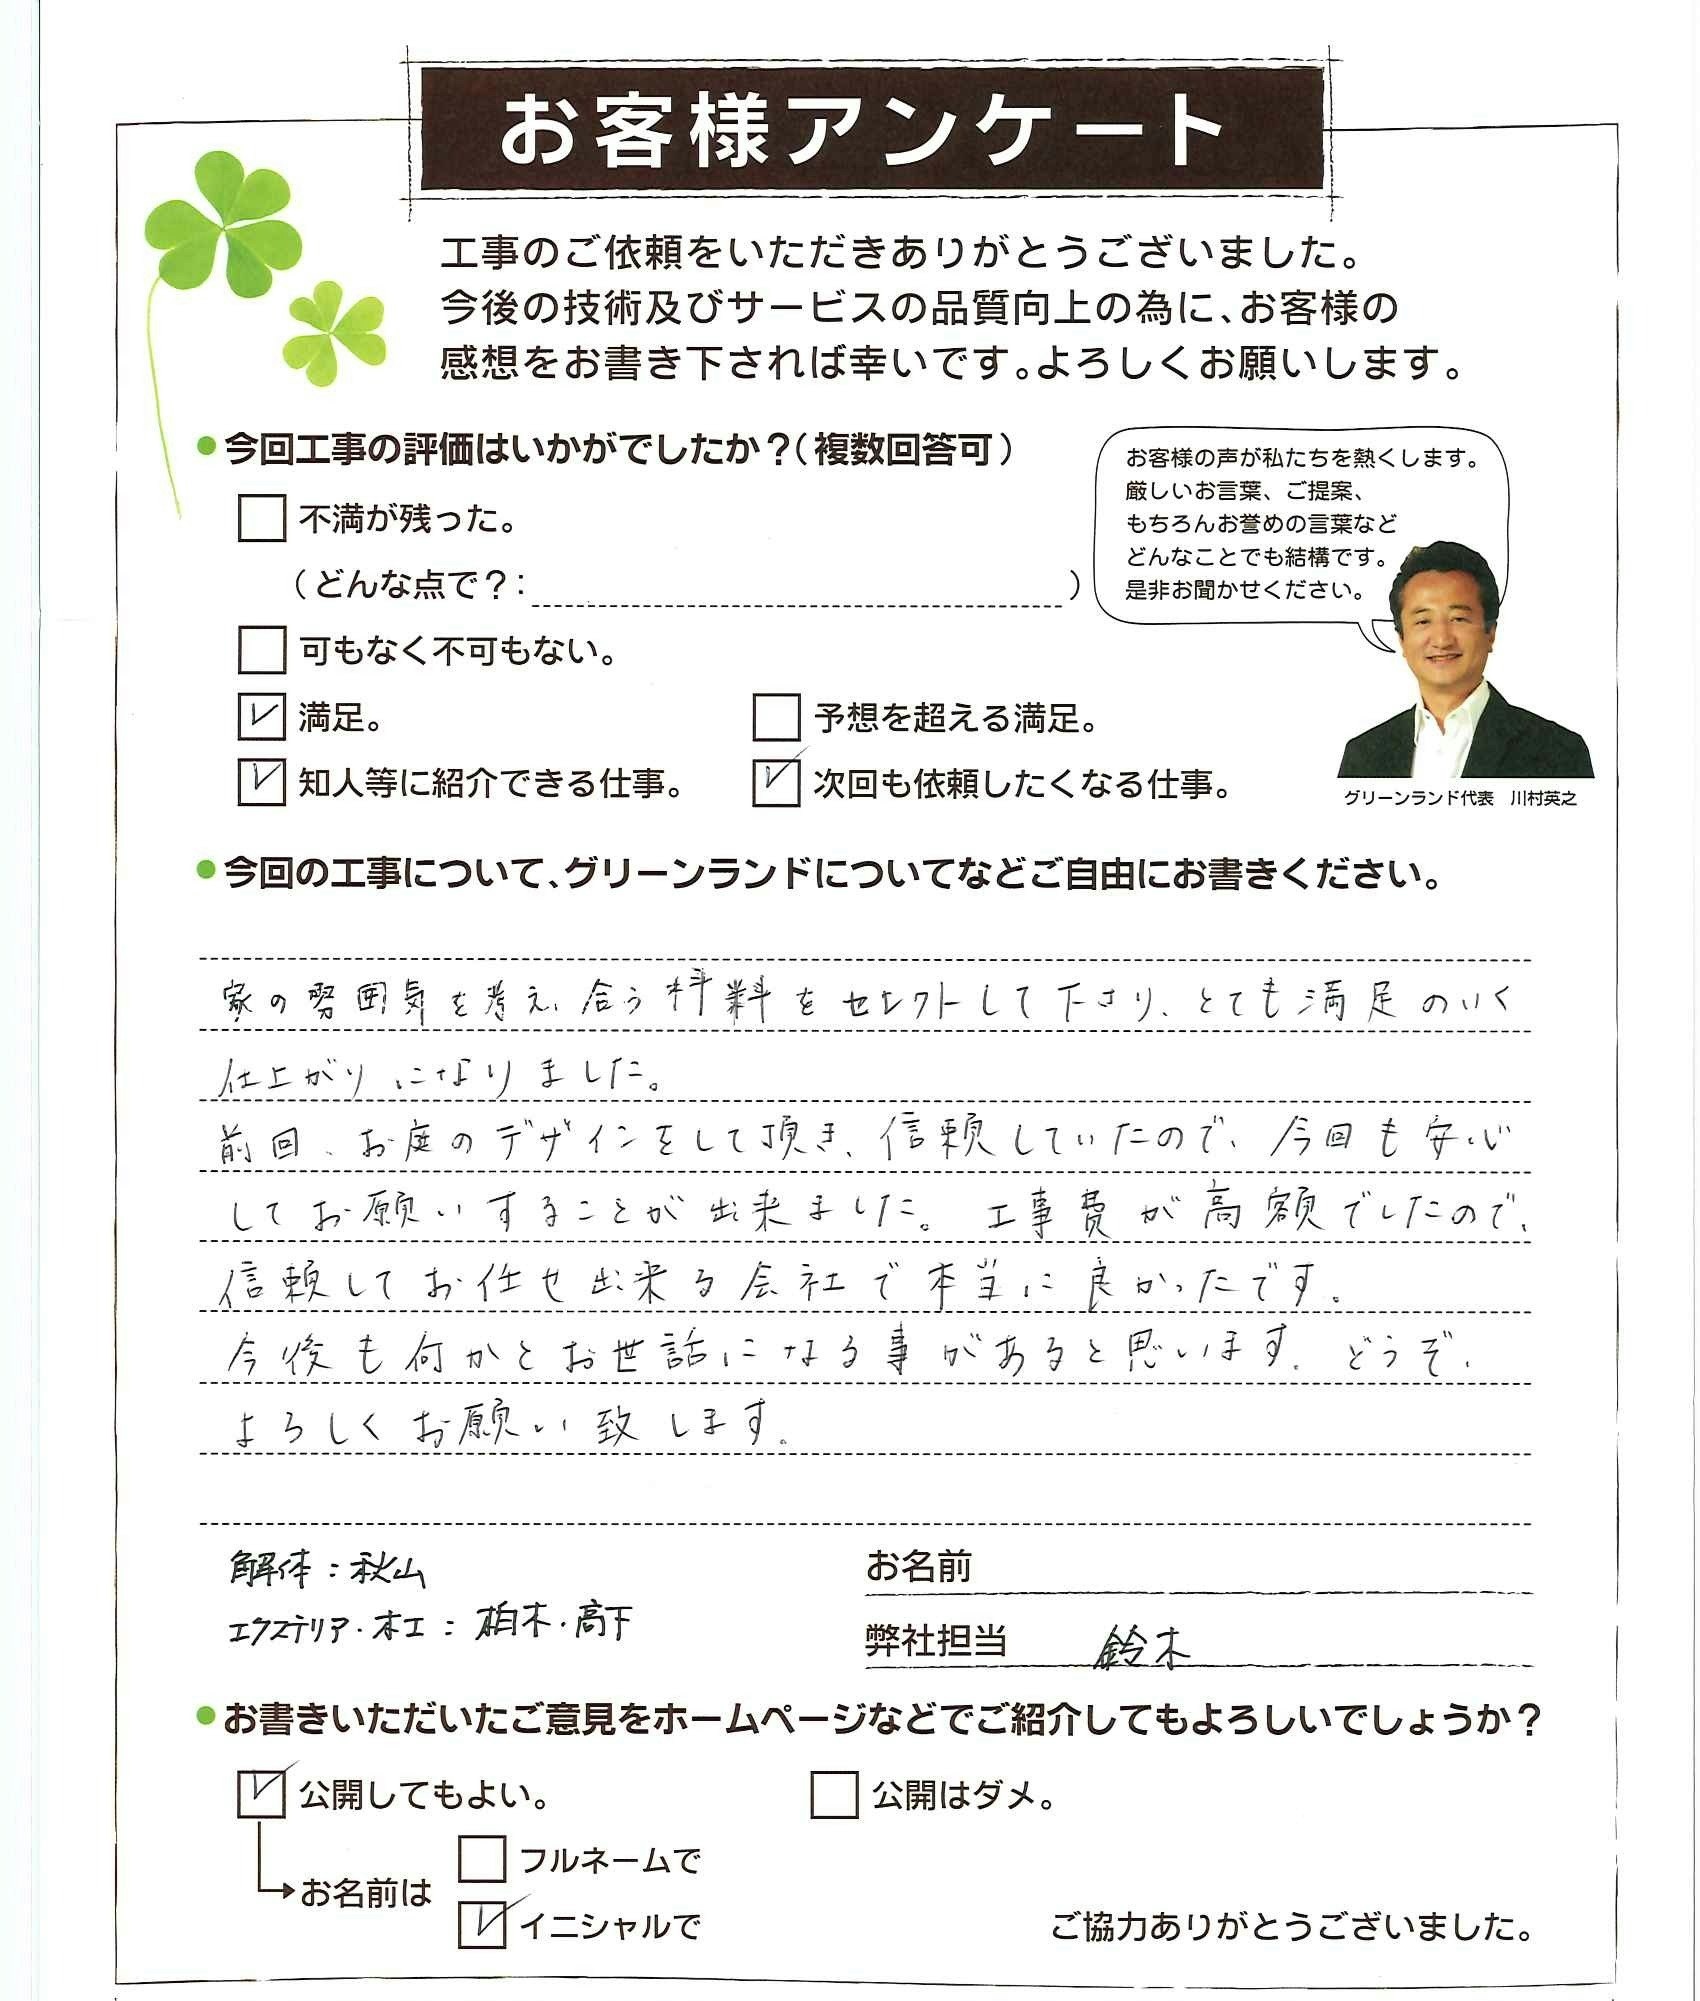 お客様アンケート
工事のご依頼をいただきありがとうございました。
今後の技術及びサービスの品質向上の為に、お客様の
感想をお書き下されば幸いです。よろしくお願いします。
●今回工事の評価はいかがでしたか?(複数回答可)
不満が残った。
(どんな点で?: )
可もなく不可もない。
満足。 予想を超える満足。
知人等に紹介できる仕事。 次回も依頼したくなる仕事。
お客様の声が私たちを熱くします。
厳しいお言葉、ご提案、
もちろんお誉めの言葉など
どんなことでも結構です。
是非お聞かせください。
グリーンランド代表 川村英之
●今回の工事について、グリーンランドについてなどご自由にお書きください。
家の雰囲気を考え、合う材料をセレクトして下さり、とても満足のいく
仕上がりになりました。
前回、お庭のデザインをして頂き、信頼していたので、今回も安心
してお願いすることが出来ました。工事費が高額でしたので、
信頼してお任せ出来る会社で本当に良かったです。
今後も何かとお世話になる事があると思います。どうぞ、
よろしくお願い致します。
解体:秋山
エクステリア・木工:柏木・高下
お名前
弊社担当 鈴木
●お書きいただいたご意見をホームページなどでご紹介してもよろしいでしょうか?
公開してもよい。 公開はダメ。
お名前は
フルネームで
イニシャルで
ご協力ありがとうございました。